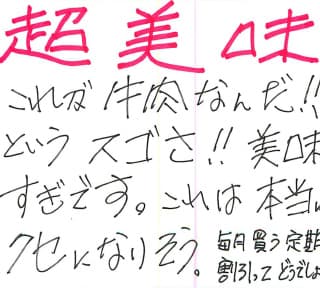 超美味
これが牛肉なんだ!!
という スゴさ!! 美味
すぎです。これは 本当に
クセになりそう。
毎月買う定期
割引って どうでしょ